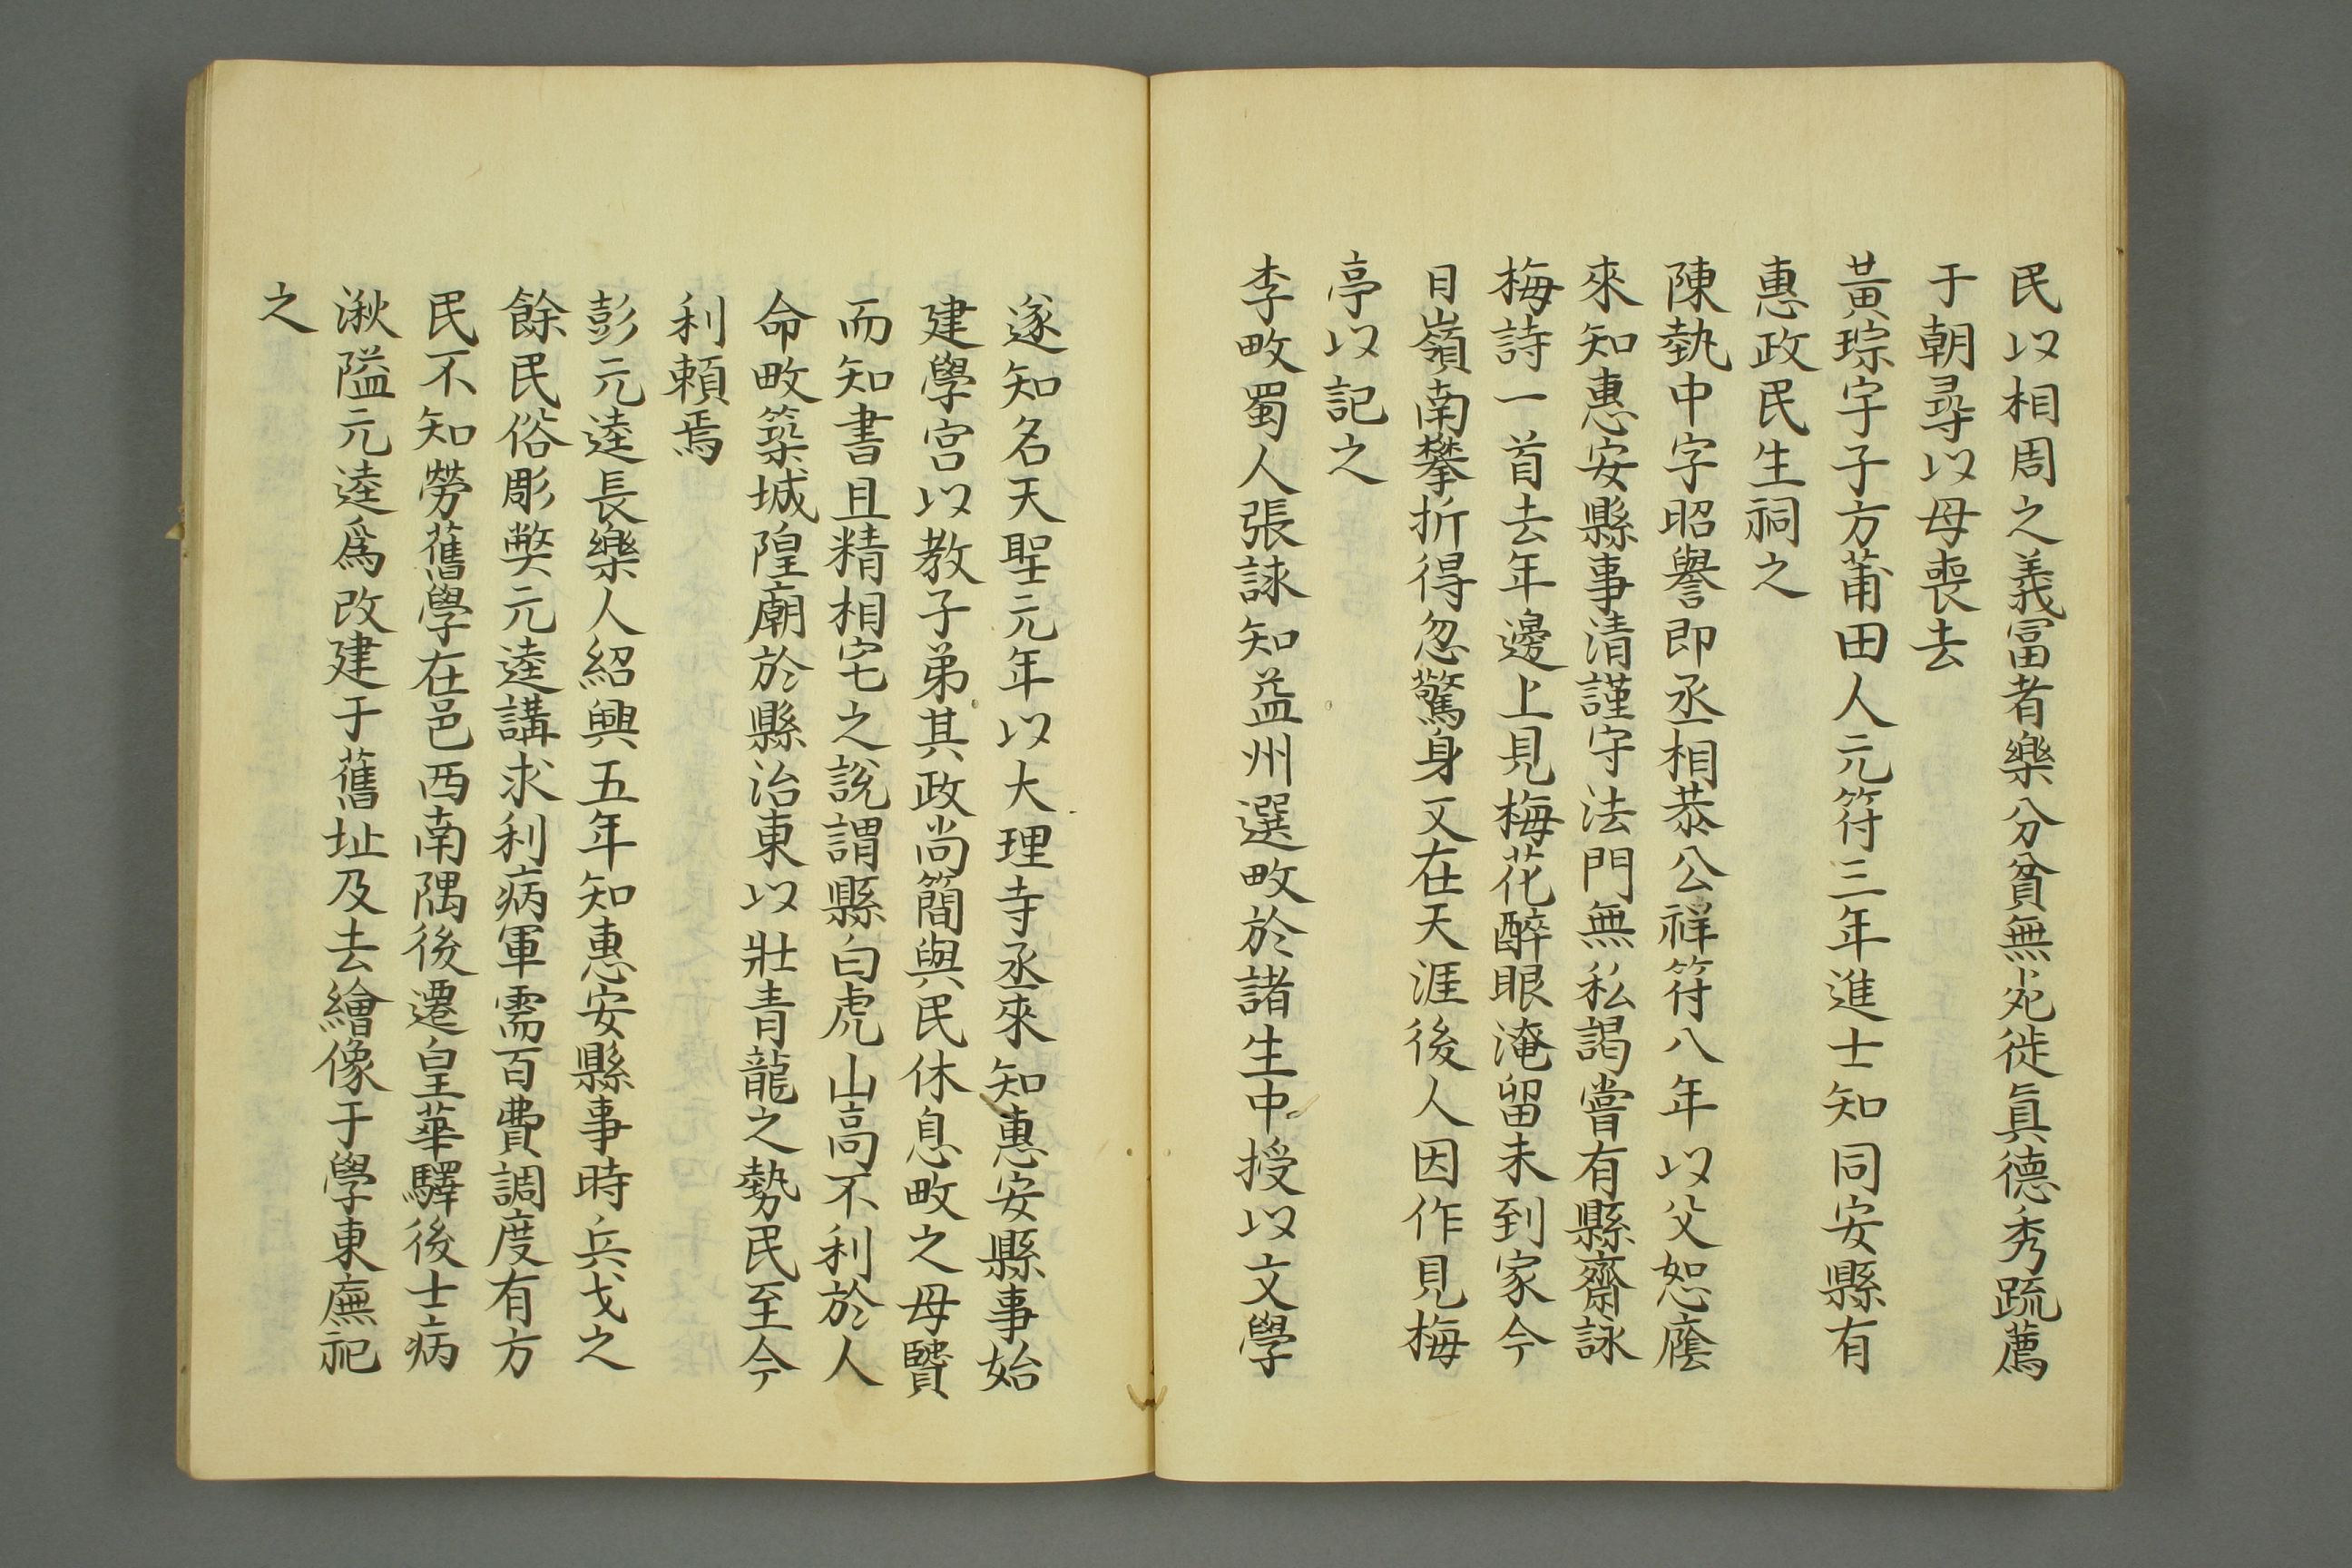 民以相周之義富者樂分貧無死徙真德秀疏薦
于朝尋以母喪去
黃琮字子方莆田人元符三年進士知同安縣有
惠政民生祠之
陳執中字昭譽即丞相恭公祥符八年以父恕廕
來知惠安縣事清謹守法門無私謁嘗有縣齋詠
梅詩一首去年邊上見梅花醉眼淹留未到家今
日嶺南攀折得忽驚身又在天涯後人因作見梅
亭以記之
李畋蜀人張詠知益州選畋於諸生中授以文學
遂知名天聖元年以大理寺丞來知惠安縣事始
建學宮以教子弟其政尚簡與民休息畋之母賢
而知書且精相宅之說謂縣白虎山高不利於人
命畋築城隍廟於縣治東以壯青龍之勢民至今
利賴焉
彭元逵長樂人紹興五年知惠安縣事時兵戈之
餘民俗彫弊元逵講求利病軍需百費調度有方
民不知勞舊學在邑西南隅後遷皇華驛後士病
湫隘元逵為改建于舊址及去繪像于學東廡祀
之